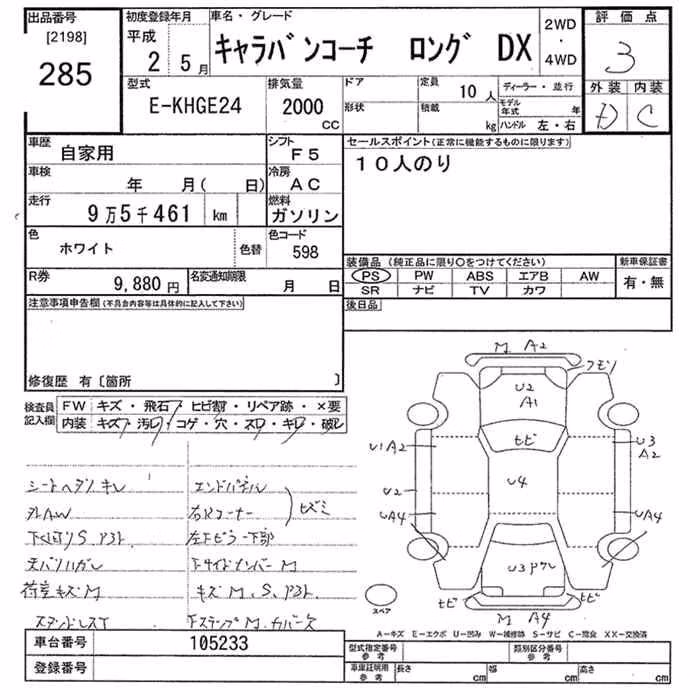 出品番号
[2198]
285
初度登録年月
平成
2 5月
車名・グレード
キャラバンコーチ ロング DX
2WD
・
4WD
評価点
3
型式
E-KHGE24
排気量
2000
CC
ドア
形状
定員
10人
積載
kg
ディーラー・並行
モデル年式 年
ハンドル 左・右
外装 内装
D C
車歴
自家用
シフト
F5
セールスポイント(正常に機能するものに限ります)
10人のり
車検
年 月( 日)
冷房
AC
走行
9万5千461 km
燃料
ガソリン
色
ホワイト
色替
色コード
598
装備品(純正品に限り○をつけてください)
PS PW ABS エアB AW
SR ナビ TV カワ
新車保証書
有・無
R券
9,880円
名変通知期限
月 日
後日品
注意事項申告欄(不具合内容等は具体的に記入して下さい)
修復歴 有〔箇所 〕
検査員
記入欄
FW キズ・飛石・ヒビ割・リペア跡・×要
内装 キズ・汚レ・コゲ・穴・スレ・キレ・破レ
M A2
U2
A1
ヒビ
U1A2
U3
A2
U4
U2
UA4
UA4
ヒビ
ヒビ
M A4
スペア
外AW
エンドパネル
右Rコーナー
荷室キズM
キズM、S、
A-キズ E-エクボ U-凹み W-補修跡 S-サビ C-腐食 XX-交換済
車台番号
105233
登録番号
型式指定番号
参考
類別区分番号
参考
車庫証明用
参考
長さ cm
幅 cm
高さ cm